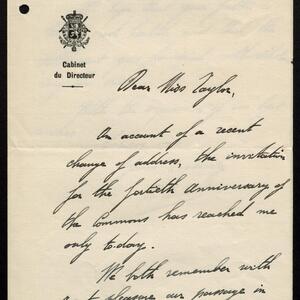 Cabinet
du Directeur
Dear Miss Taylor,
On account of a recent
change of address, the invitation
for the fortieth Anniversary of
the Commons has reached me
only to-day.
We both remember with
great pleasure our passage in